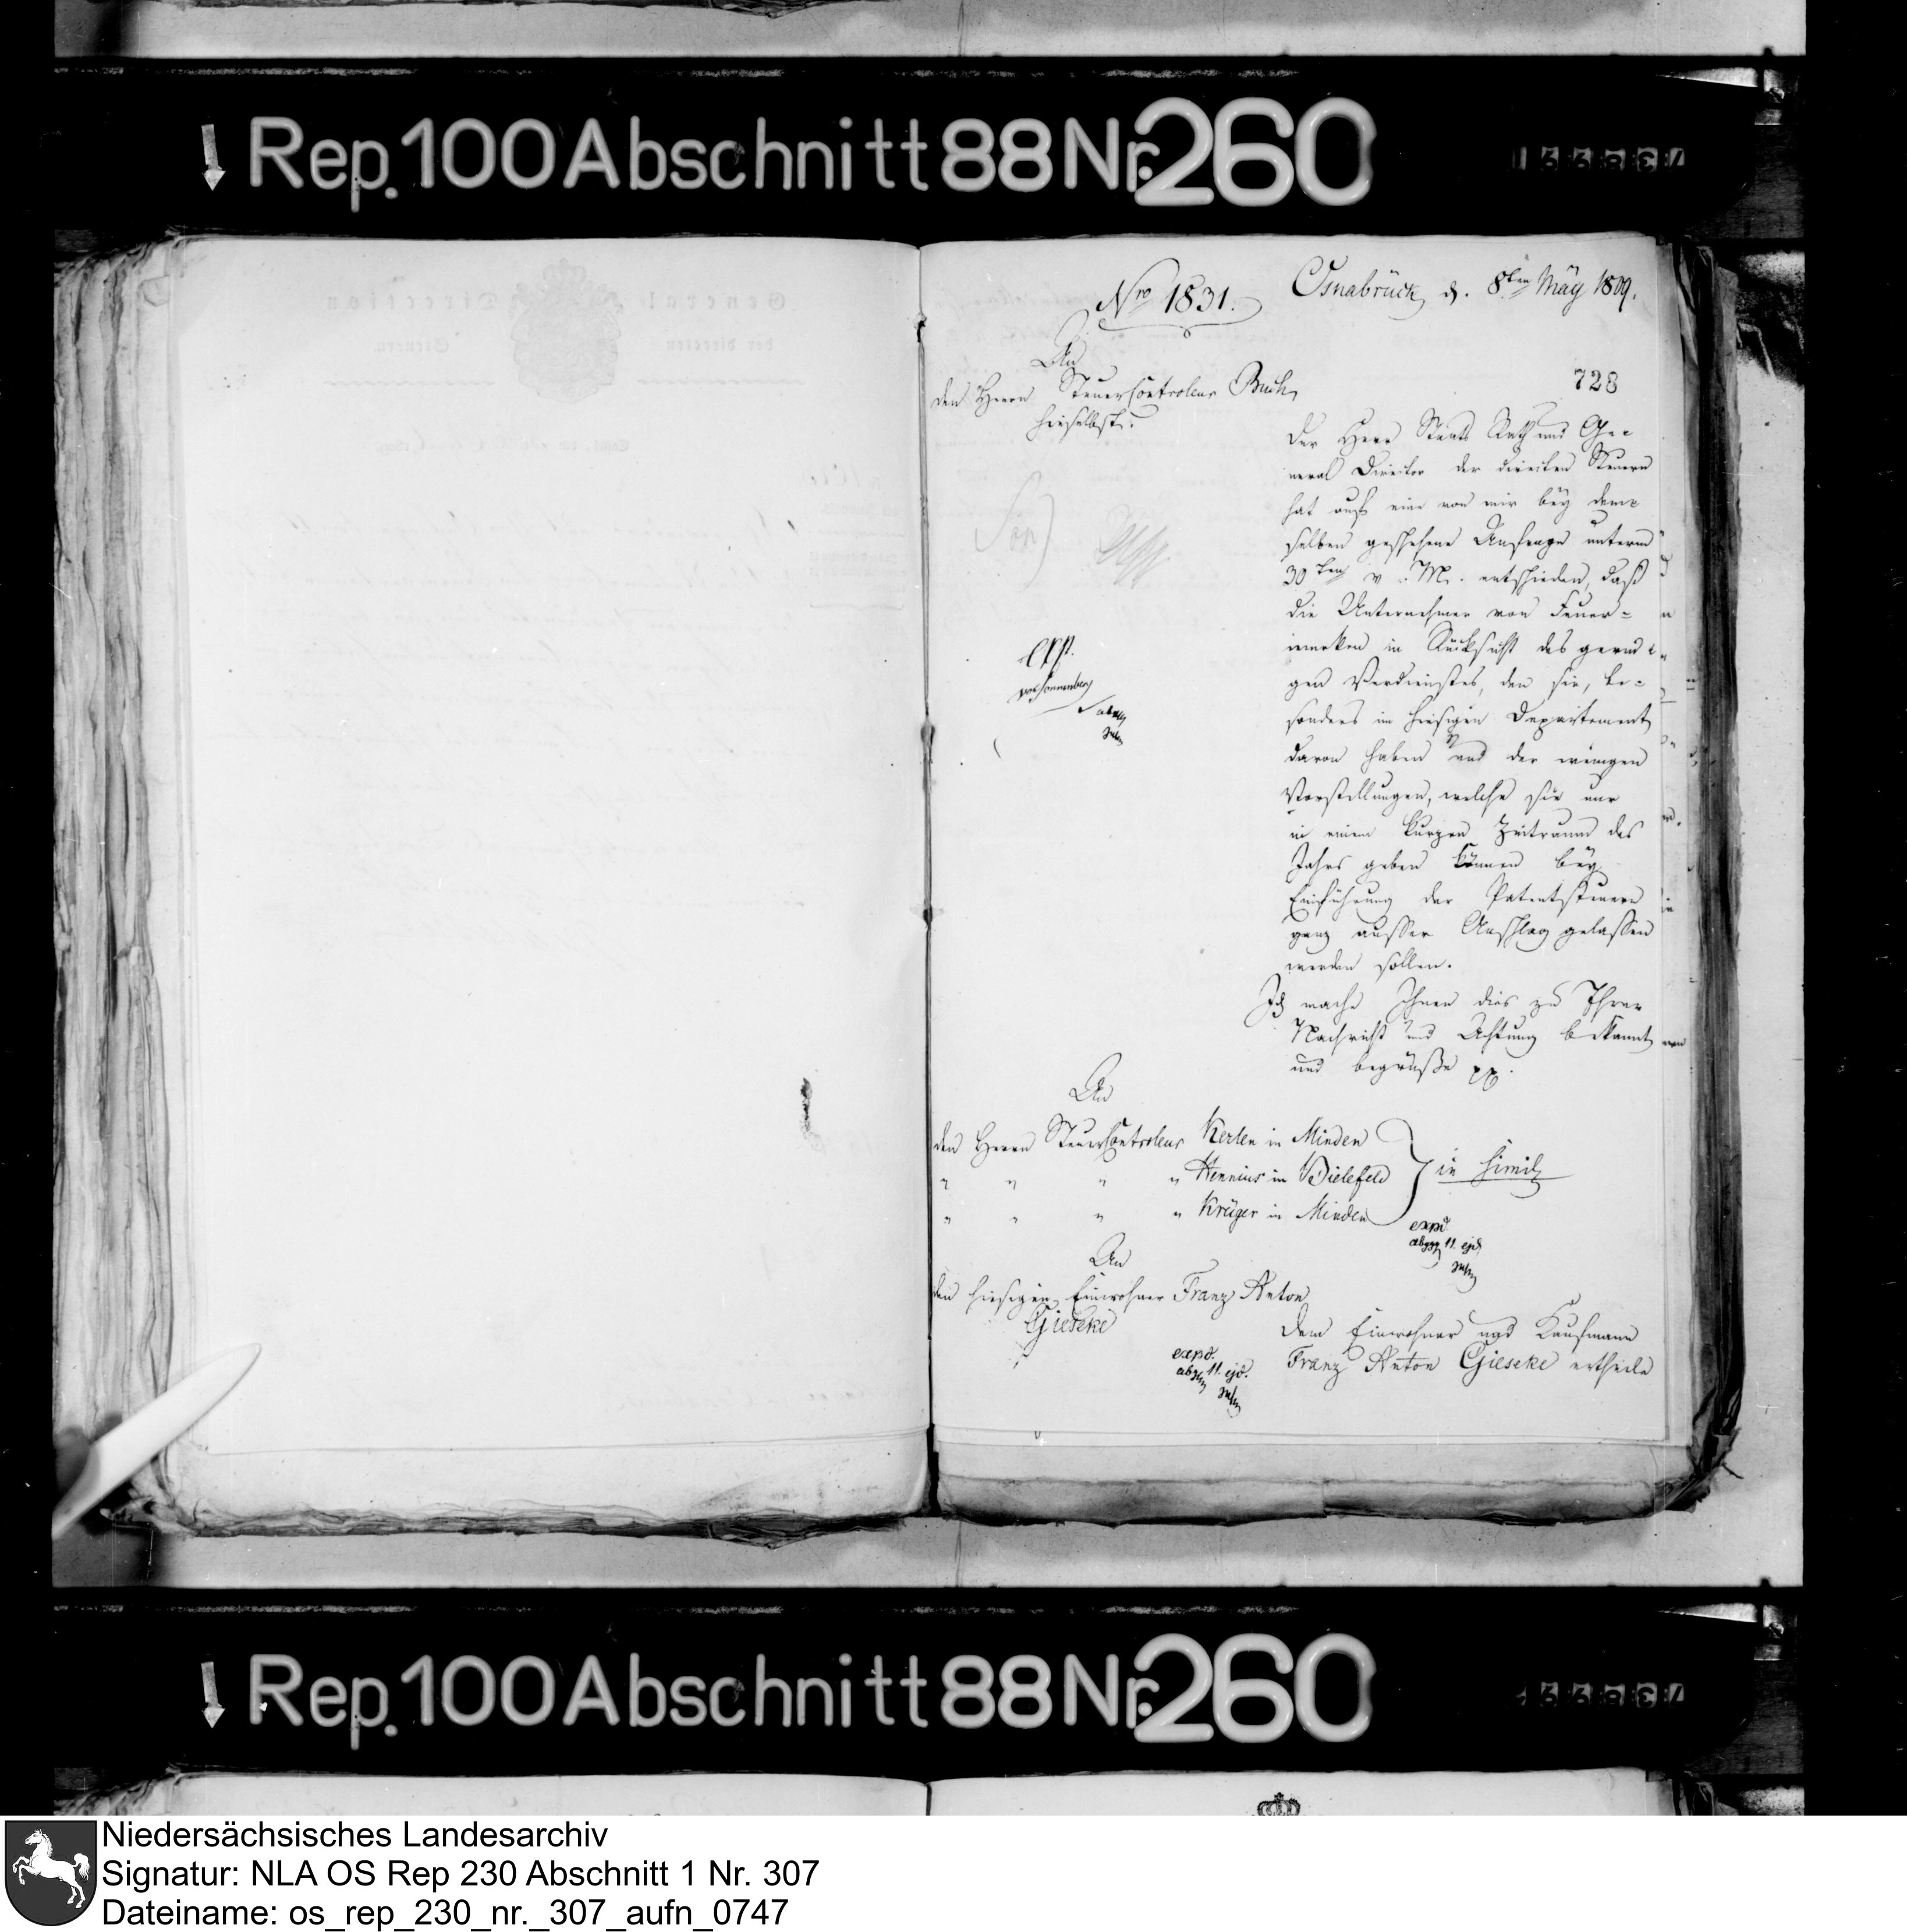 Rep. 100 Abschnitt 88 Nr. 260
Nro 1831.
Osnabrück, d. 8ten May 1809.
728
An
den Herrn Steuer Controleur Buch,
hieselbst.
Der Herr Staats Rath und Ge=
neral Director der directen Steuern
hat auf eine von mir bey dem=
selben geschehene Anfrage unterm
30ten v. M. entschieden, daß
die Unternehmer von Feuer=
werken in Rücksicht des gerin=
gen Verdienstes, den sie, be=
sonders im hiesigen Departement
davon haben und der wenigen
Vorstellungen, welche sie nur
in einem kurzen Zeitraum des
Jahrs geben können bey
Einführung der Patentsteuern
ganz ausser Anschlag gelassen
werden sollen.
Ich mache Ihnen dies zu Ihrer
Nachricht und Achtung bekannt
und begrüße pp.
exp.
An
den Herrn Steuer Controleur Kerlen in Minden
" " " " Hennius in Bielefeld
" " " " Krüger in Minden
in simili
expd.
abggg 11. ejd.
An
den hiesigen Einwohner Franz Anton
Gieseke
expd.
abggg 11. ejd.
Dem Einwohner und Kaufmann
Franz Anton Gieseke ertheile
Rep. 100 Abschnitt 88 Nr. 260
Niedersächsisches Landesarchiv
Signatur: NLA OS Rep 230 Abschnitt 1 Nr. 307
Dateiname: os_rep_230_nr._307_aufn_0747